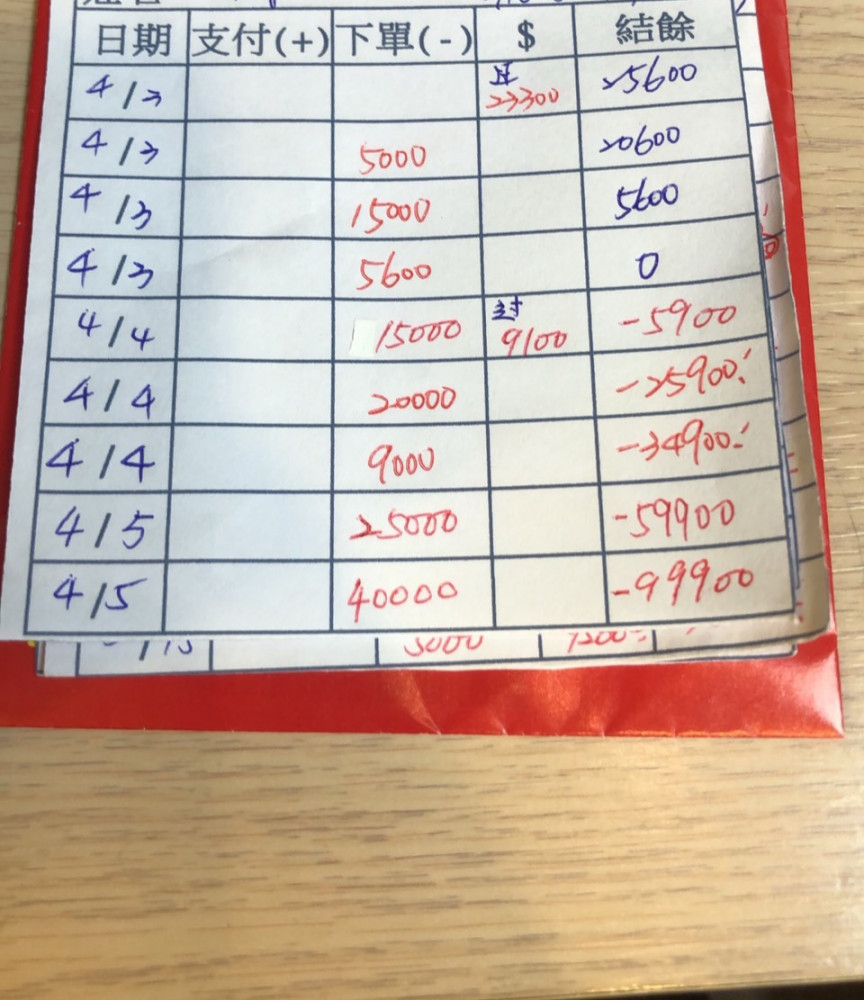 日期 支付(+) 下單(-) $ 結餘
4/3 23300 25600
4/3 5000 20600
4/3 15000 5600
4/3 5600 0
4/4 15000 封 9100 -5900
4/4 20000 -25900
4/4 9000 -34900
4/5 25000 -59900
4/5 40000 -99900